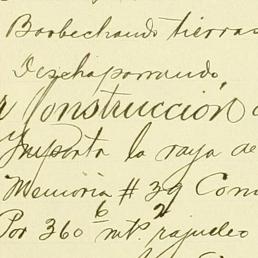 Barbechando tierras
Deschaparrando
Construcción
Importa la raya de
Memoria # 39 Com
Por 360 6 mts.2 rajuelo